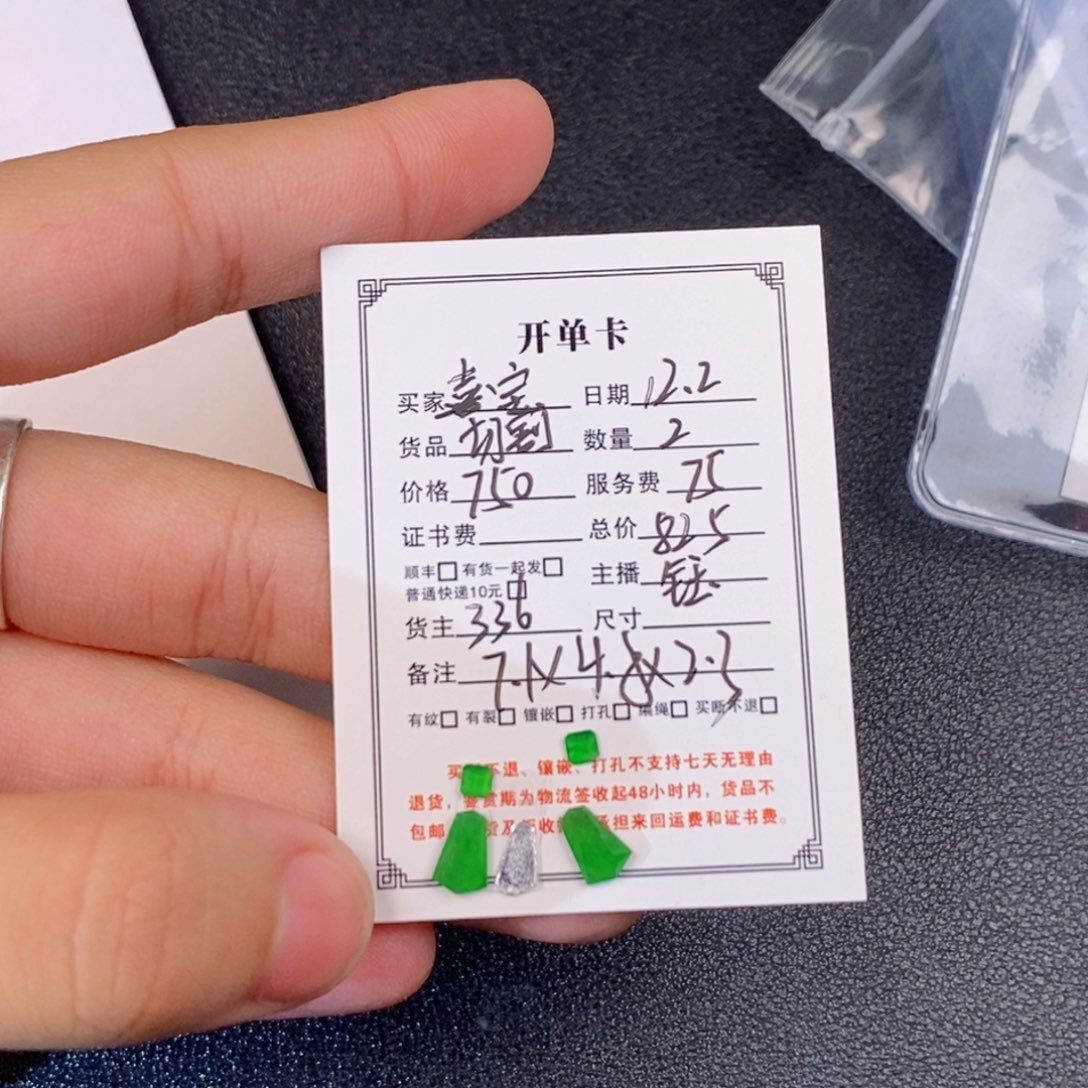 开单卡
买家 喜宝 日期 12.2
货品 切割 数量 2
价格 750 服务费 75
证书费 总价 825
顺丰□ 有货一起发□
普通快递10元□ 主播
货主 336 尺寸
备注 7.1X4.8X2.3
有纹□ 有裂□ 镶嵌□ 打孔□ 编绳□ 买断不退□
买 不退、镶嵌、打孔不支持七天无理由
退货，鉴赏期为物流签收起48小时内，货品不
包邮 货及 收 承担来回运费和证书费。